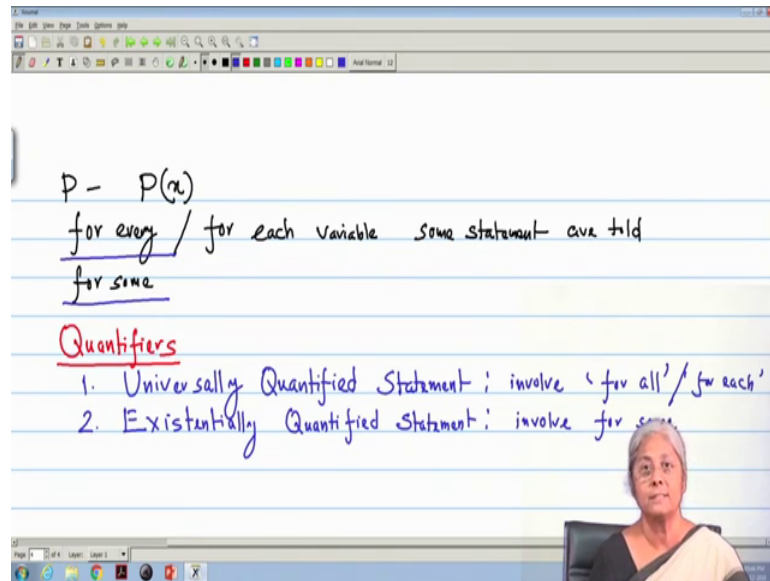 Journal
File Edit View Page Tools Options Help
Arial Normal 12
P - P(x)
for every / for each variable some statement are told
for some
Quantifiers
1. Universally Quantified Statement : involve 'for all' / 'for each'
2. Existentially Quantified Statement : involve for some
Page 4 of 4 Layer: Layer 1